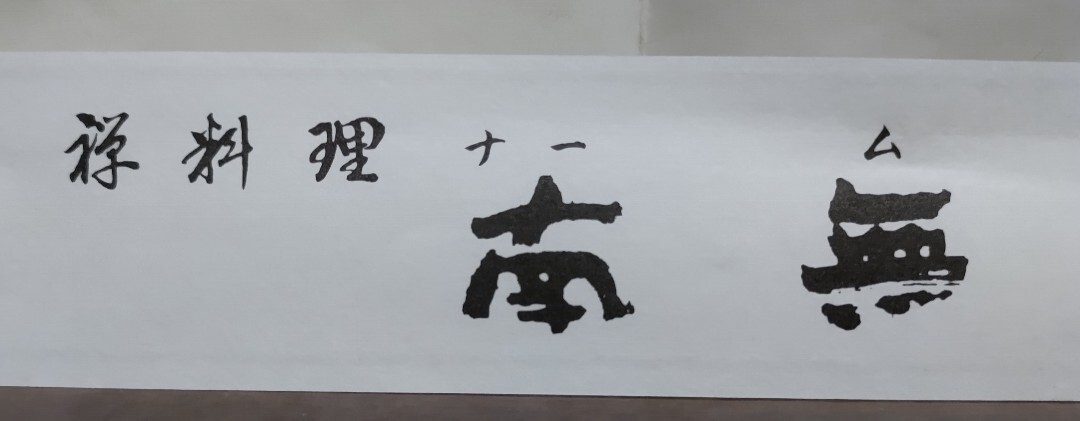 禅料理 ナー ム
南無